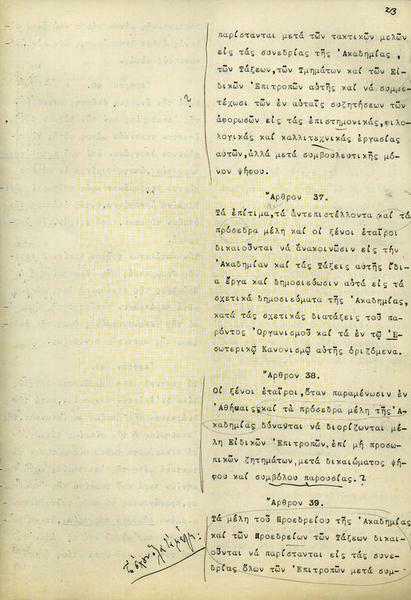 23
παρίστανται μετά τῶν τακτικῶν μελῶν
εἰς τάς συνεδρίας τῆς Ἀκαδημίας,
τῶν Τάξεων,τῶν Τμημάτων καί τῶν Εἰ-
δικῶν Ἐπιτροπῶν αὐτῆς καί νά συμμε-
τέχωσι τῶν ἐν αὐταῖς συζητήσεων τῶν
ἀφορωσῶν εἰς τάς ἐπιστημονικάς,φιλο-
λογικάς καί καλλιτεχνικάς ἐργασίας
αὐτῶν,ἀλλά μετά συμβουλευτικῆς μό-
νον ψήφου.
Ἄρθρον 37.
Τά ἐπίτιμα,τά ἀντεπιστέλλοντα καί τά
πρόσεδρα μέλη καί οἱ ξένοι ἑταῖροι
δικαιοῦνται νά ἀνακοινῶσιν εἰς τήν
Ἀκαδημίαν καί τάς Τάξεις αὐτῆς ἴδι-
α ἔργα καί δημοσιεύωσιν αὐτά εἰς τά
σχετικά δημοσιεύματα τῆς Ἀκαδημίας,
κατά τάς σχετικάς διατάξεις τοῦ πα-
ρόντος Ὀργανισμοῦ καί τά ἐν τῷ Ἐ-
σωτερικῷ Κανονισμῷ αὐτῆς ὁριζόμενα.
Ἄρθρον 38.
Οἱ ξένοι ἑταῖροι,ὅταν παραμένωσιν ἐν
Ἀθήναις καί τά πρόσεδρα μέλη τῆς Ἀ-
καδημίας δύνανται νά διορίζωνται μέ-
λη Εἰδικῶν Ἐπιτροπῶν,ἐπί μή προσω-
πικῶν ζητημάτων,μετά δικαιώματος ψή-
φου καί συμβόλου παρουσίας.
Ἄρθρον 39.
Τά μέλη τοῦ Προεδρείου τῆς Ἀκαδημίας
καί τῶν Προεδρείων τῶν Τάξεων δικαι-
οῦνται νά παρίστανται εἰς τάς συνε-
δρίας ὅλων τῶν Ἐπιτροπῶν μετά συμ-